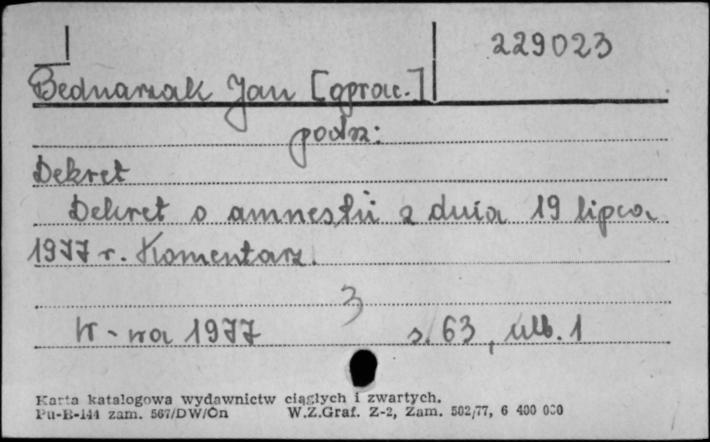 229023
Bednarzak Jan [oprac.]
podz:
Dekret
Dekret o amnestii z dnia 19 lipca
1977 r. Komentarz.
3
W-wa 1977 s. 63, ulb. 1
Karta katalogowa wydawnictw ciągłych i zwartych.
Pu-B-144 zam. 567/DW/On W.Z.Graf. Z-2, Zam. 502/77, 6 400 000